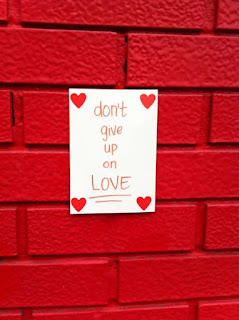 don't
give
up
on
LOVE